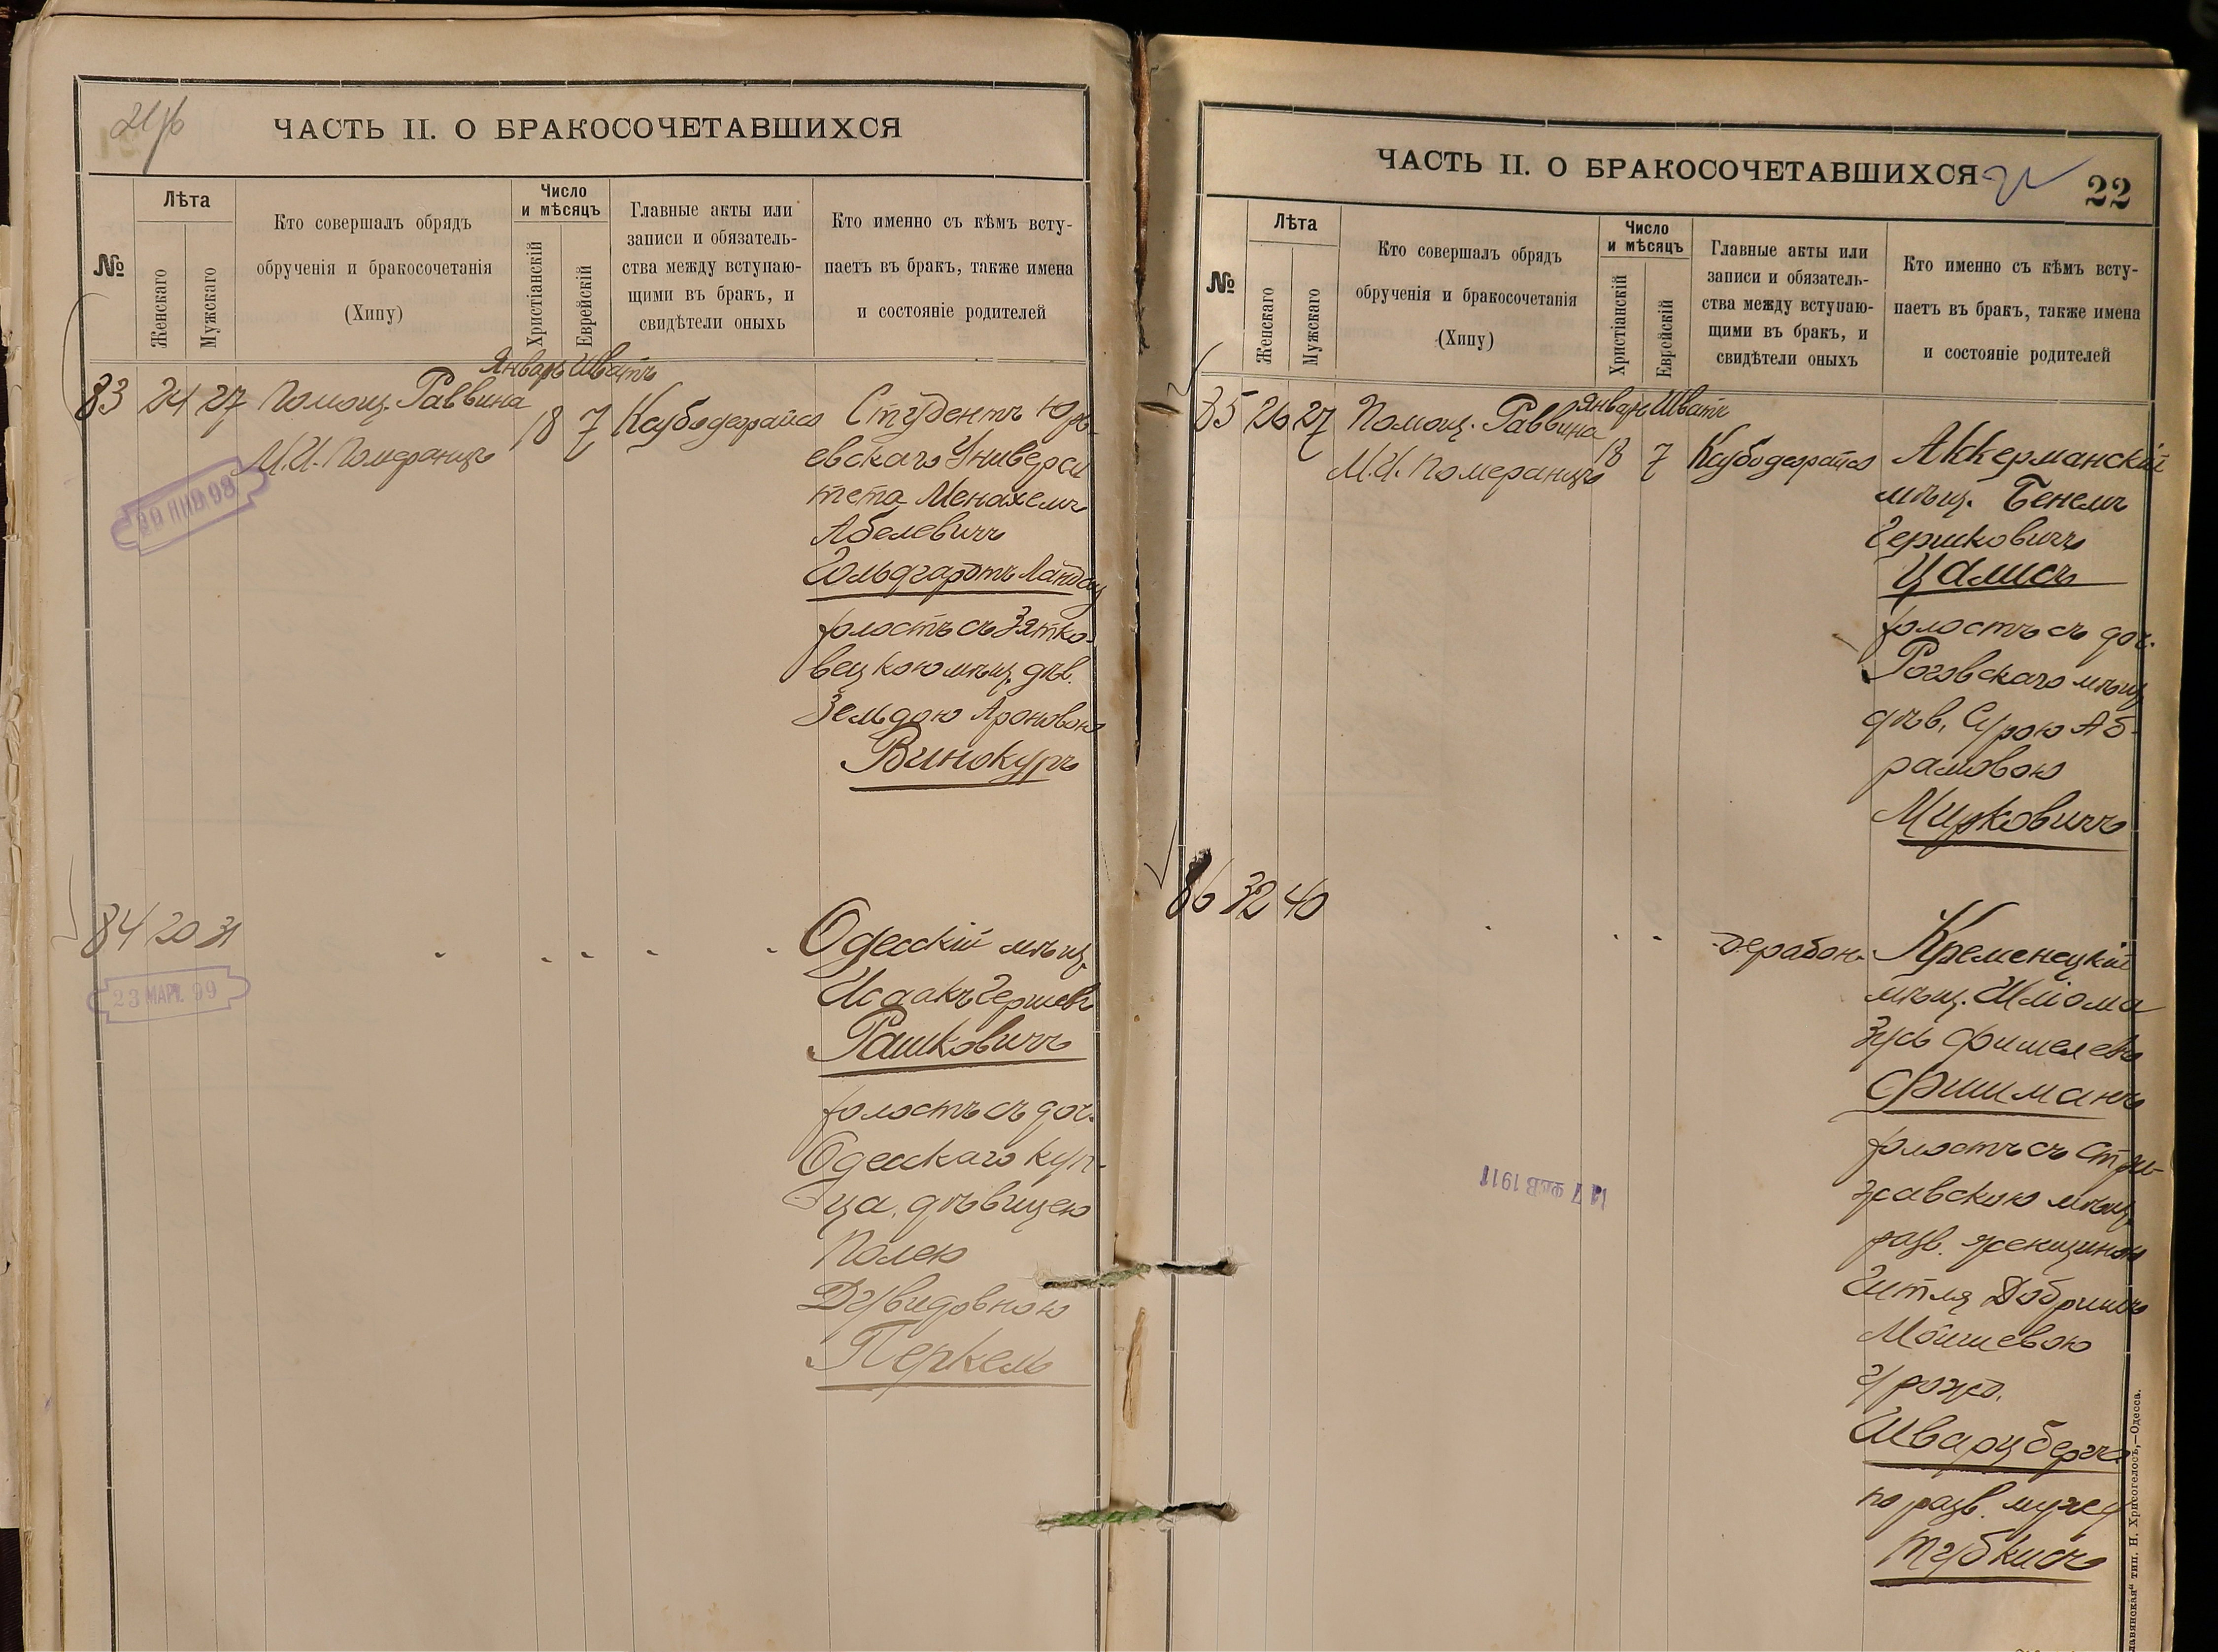 21об
ЧАСТЬ II. О БРАКОСОЧЕТАВШИХСЯ
№
Лѣта
Женскаго
Мужскаго
Кто совершалъ обрядъ
обрученія и бракосочетанія
(Хипу)
Число
и мѣсяцъ
Христіанскій
Еврейскій
Главные акты или
записи и обязатель-
ства между вступаю-
щими въ бракъ, и
свидѣтели оныхъ
Кто именно съ кѣмъ всту-
паетъ въ бракъ, также имена
и состояніе родителей
Январь Шватъ
83 24 27 Помощ. Раввина 18 7 Ксубодеорайсо
М.И. Померанцъ
Студентъ Юрь-
евскаго Универси
тета Менахемъ
Абелевичъ
Гольдгардтъ Ландау
холостъ съ Зятко-
вецкою мѣщ. дѣв.
Зельдою Ароновою
Винокуръ
84 20 31
23 МАР. 99
Одесскій мѣщ.
Исаакъ Гершевъ
Рашковичъ
холостъ съ доч.
Одесскаго куп-
ца, дѣвицею
Полею
Давидовною
Перкель
ЧАСТЬ II. О БРАКОСОЧЕТАВШИХСЯ
22
№
Лѣта
Женскаго
Мужскаго
Кто совершалъ обрядъ
обрученія и бракосочетанія
(Хипу)
Число
и мѣсяцъ
Христіанскій
Еврейскій
Главные акты или
записи и обязатель-
ства между вступаю-
щими въ бракъ, и
свидѣтели оныхъ
Кто именно съ кѣмъ всту-
паетъ въ бракъ, также имена
и состояніе родителей
Январь Шватъ
85 26 27 Помощ. Раввина 18 7 Ксубодеорайсо
М.И. Померанцъ
Аккерманскій
мѣщ. Бенемъ
Гершковичъ
Цалисъ
холостъ съ доч.
Роговскаго мѣщ.
дѣв. Сурою Аб-
рамовою
Мирковичъ
86 32 40 дерабон.
Кременецкій
мѣщ. Шлiома
Зусь Фишелевъ
Фишманъ
холостъ съ Стри-
жавскою мѣщ.
разв. женщиною
Гитля Добришъ
Мошевою
урожд.
Шварцбергъ
по разв. мужу
Трубкисъ
17 ФЕВ 1911
тип. Н. Хрисогелосъ,—Одесса.